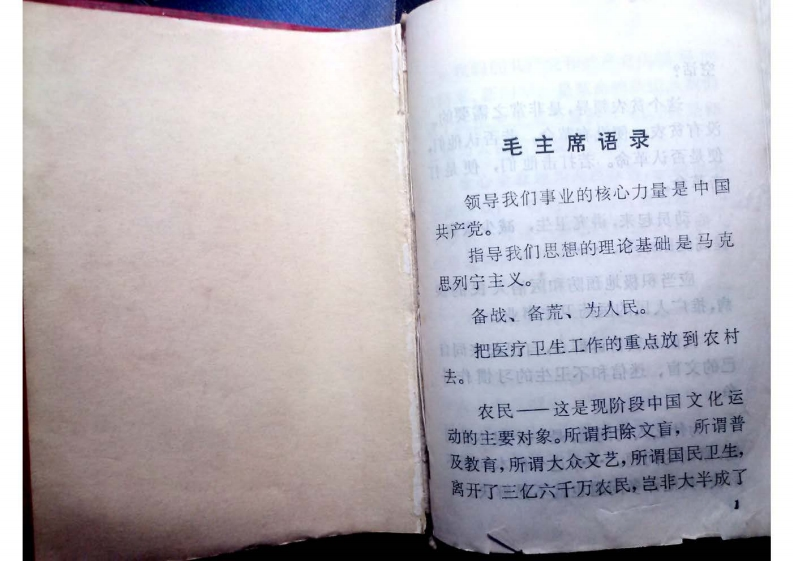 毛主席语录
领导我们事业的核心力量是中国
共产党。
指导我们思想的理论基础是马克
思列宁主义。
备战、备荒、为人民。
把医疗卫生工作的重点放到农村
去。
农民——这是现阶段中国文化运
动的主要对象。所谓扫除文盲，所谓普
及教育，所谓大众文艺，所谓国民卫生，
离开了三亿六千万农民，岂非大半成了
1